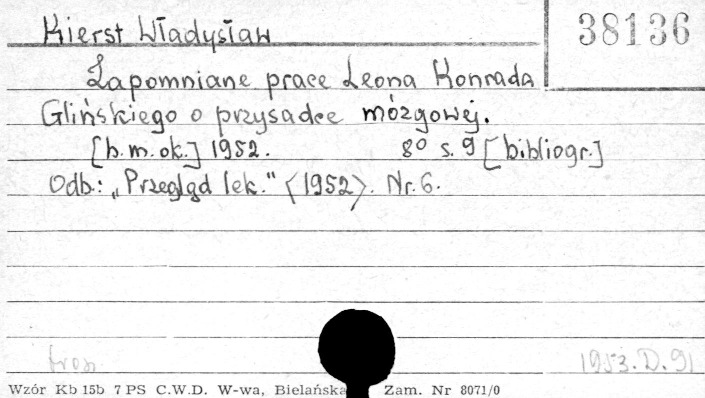 Kierst Władysław
38136
Zapomniane prace Leona Konrada
Glińskiego o przysadce mózgowej.
[b.m.ok.] 1952. 8° s. 9 [bibliogr.]
Odb.: „Przegląd lek." <1952>. Nr. 6.
1953.D.91
Wzór Kb 15b 7 PS C.W.D. W-wa, Bielańska Zam. Nr 8071/0